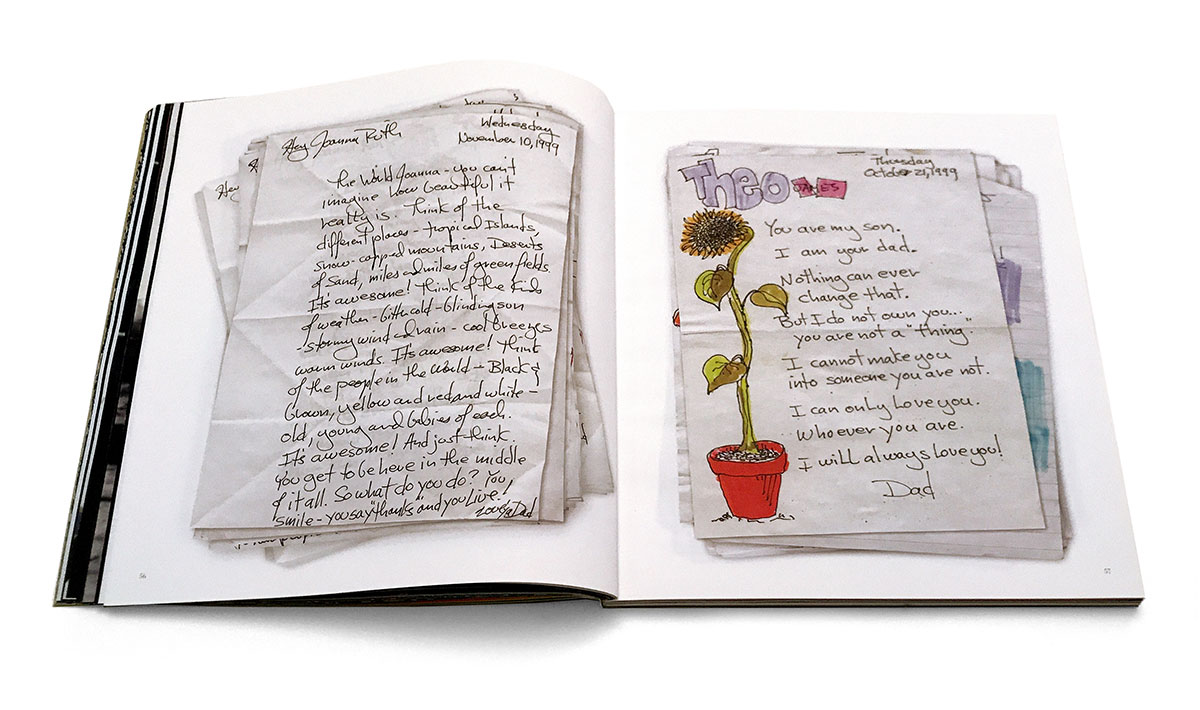 Hey Joanna Ruth
Wednesday
November 10, 1999
The World Joanna - you can't
imagine how beautiful it
really is. Think of the
different places - tropical Islands,
snow-capped mountains, Deserts
of Sand, miles and miles of green fields.
It's awesome! Think of the kinds
of weather - bitter cold - blinding sun
- stormy wind and rain - cool breezes
warm winds. It's awesome! Think
of the people in the world - Black &
brown, yellow and red and white -
old, young and babies of each.
It's awesome! And just think.
You get to be here in the middle
of it all. So what do you do? You
smile - you say "thanks" and you Live!
Love ya Dad
56
Theo JAMES
Thursday
October 21, 1999
You are my son.
I am your dad.
Nothing can ever
change that.
But I do not own you...
you are not a "thing."
I cannot make you
into someone you are not.
I can only love you.
Whoever you are.
I will always love you!
Dad
57